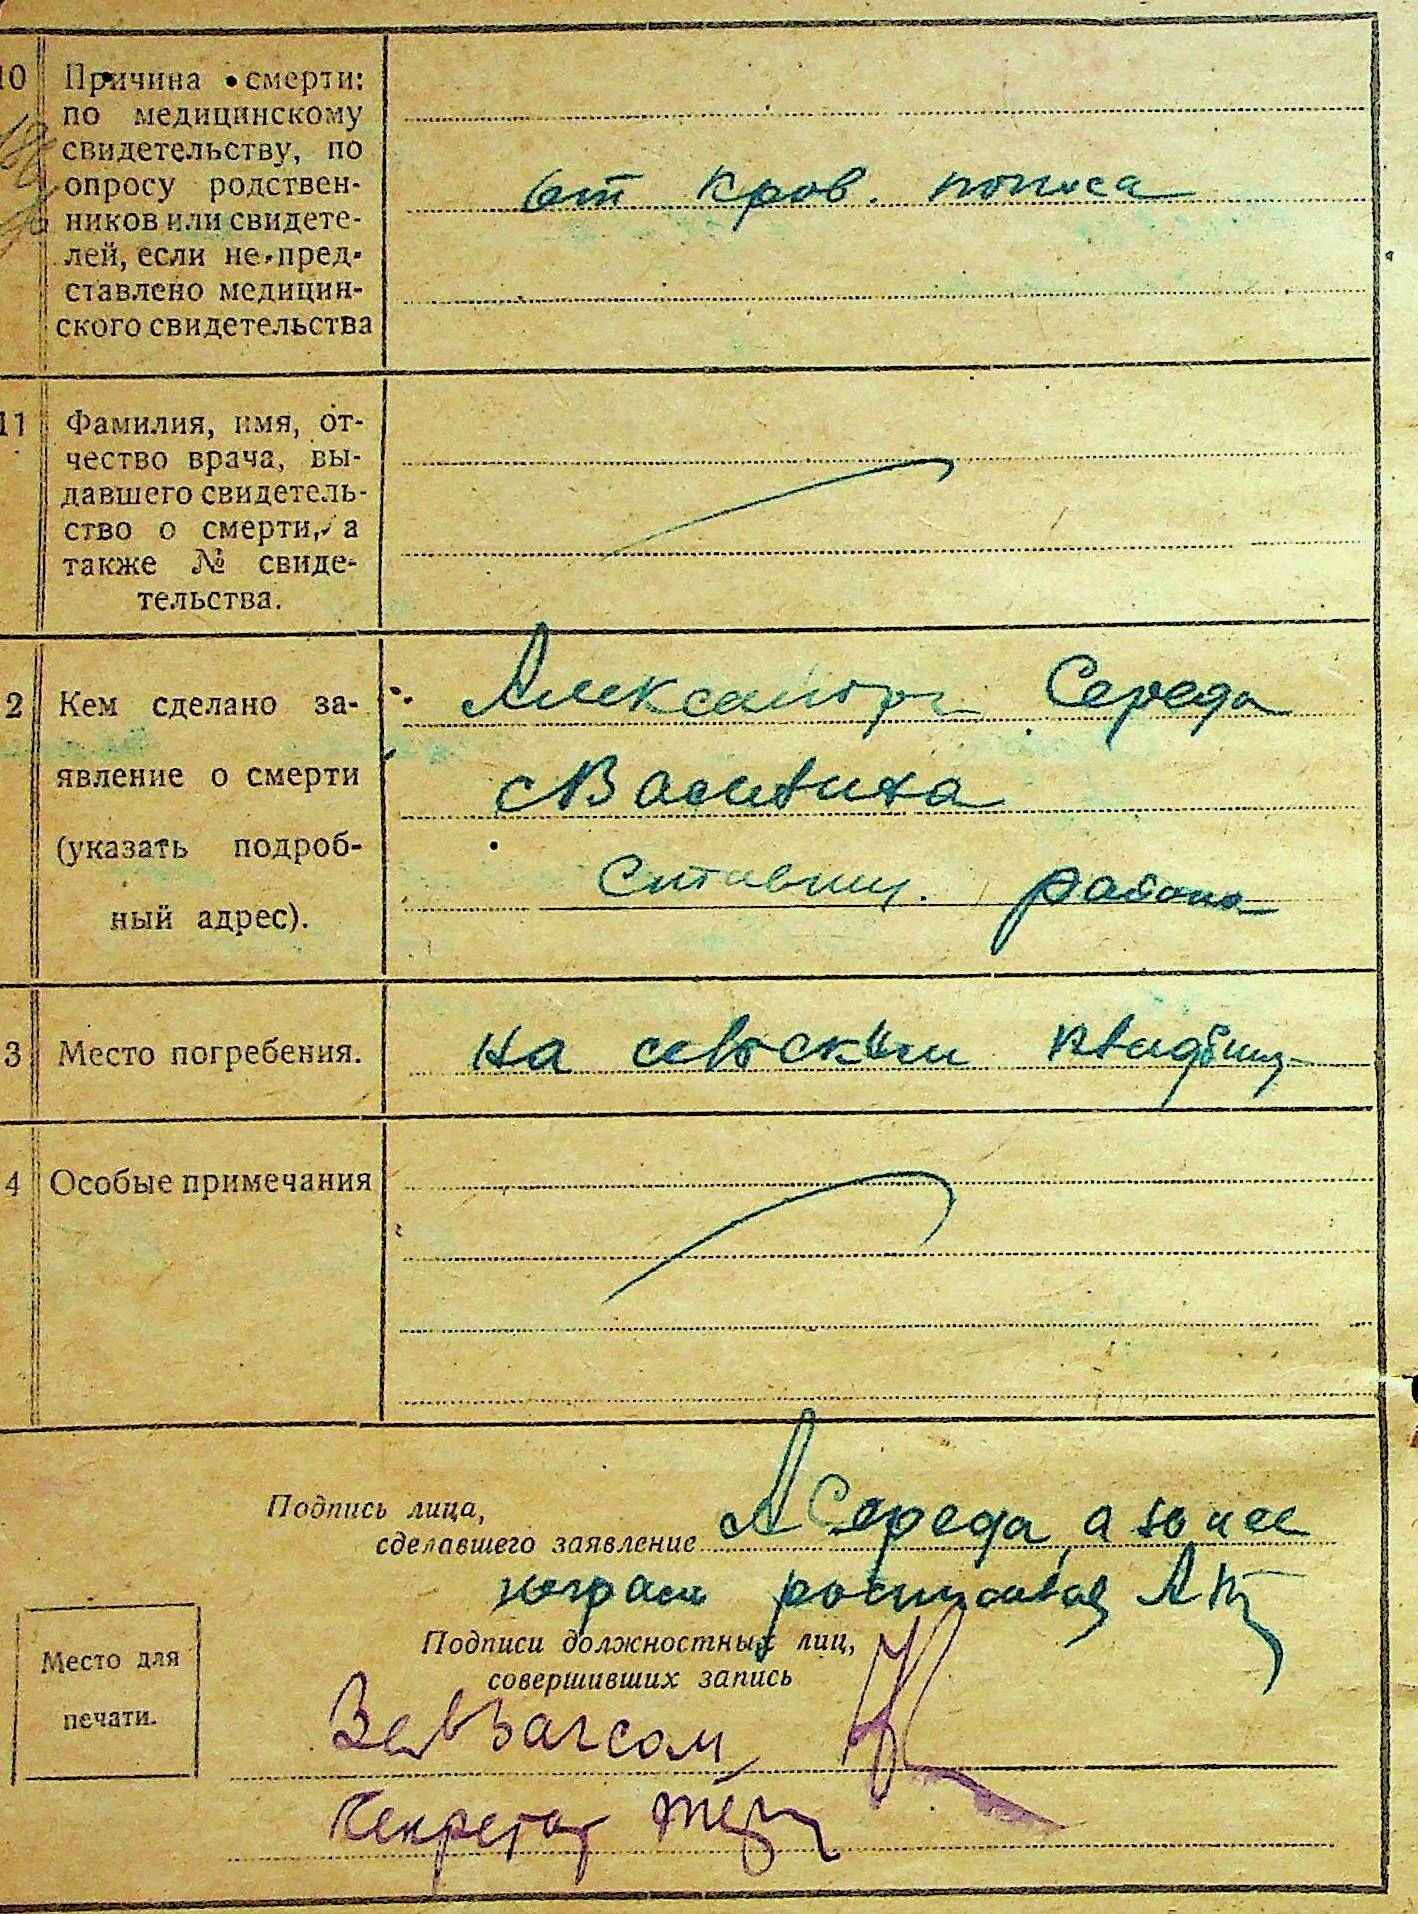 10 Причина смерти:
по медицинскому
свидетельству, по
опросу родствен-
ников или свидете-
лей, если не пред-
ставлено медицин-
ского свидетельства
от кров. поноса
11 Фамилия, имя, от-
чество врача, вы-
давшего свидетель-
ство о смерти, а
также № свиде-
тельства.
2 Кем сделано за-
явление о смерти
(указать подроб-
ный адрес).
Александр Середа
с Василиха
Ставищ. района
3 Место погребения.
на сельском кладбищ
4 Особые примечания
Подпись лица,
сделавшего заявление А Середа, а за нее
неграм росписалась
Подписи должностных лиц,
совершивших запись
Место для
печати.
Зав Загсом
Секретар